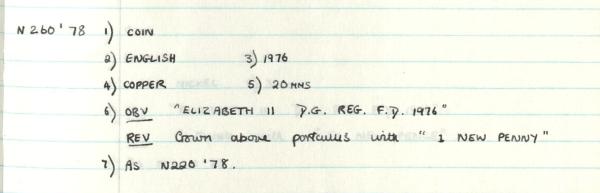 N260 '78 1) COIN
2) ENGLISH 3) 1976
4) COPPER 5) 20 MMS
6) OBV "ELIZABETH II D.G. REG. F.D. 1976"
REV Crown above portcullis with "1 NEW PENNY"
7) AS N220 '78.